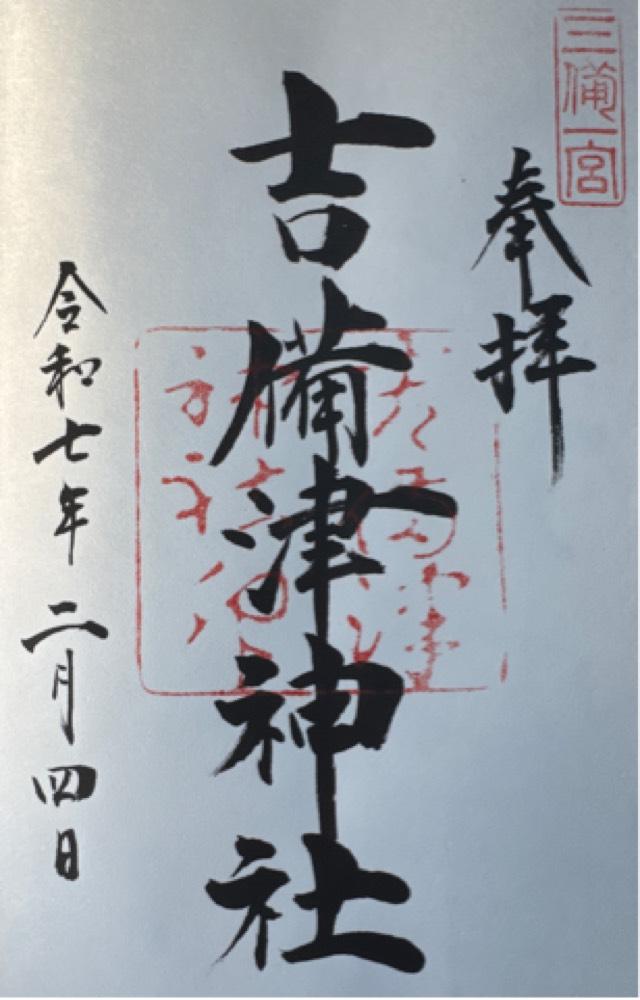 三備一宮
奉拝
吉備津神社
令和七年二月四日